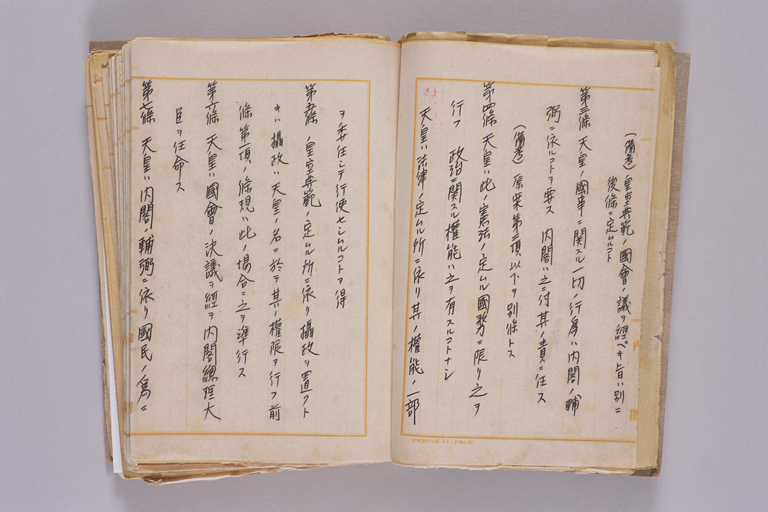 (備考)皇室典範ノ國會ノ議ヲ經ベキ旨ハ別ニ
後條ニ定ムルコト
第三條 天皇ノ國事ニ關スル一切ノ行為ハ内閣ノ輔
弼ニ依ルコトヲ要ス 内閣ハ之ニ付其ノ責ニ任ス
(備考)原案第二項以下ヲ別條トス
第四條 天皇ハ此ノ憲法ノ定ムル國務ニ限リ之ヲ
行フ 政治ニ關スル權能ハ之ヲ有スルコトナシ
天皇ハ法律ノ定ムル所ニ依リ其ノ權能ノ一部
ヲ委任シテ行使セシムルコトヲ得
第五條 皇室典範ノ定ムル所ニ依リ攝政ヲ置クト
キハ攝政ハ天皇ノ名ニ於テ其ノ權限ヲ行フ前
條第一項ノ條規ハ此ノ場合ニ之ヲ準行ス
第六條 天皇ハ國會ノ決議ヲ經テ内閣總理大
臣ヲ任命ス
第七條 天皇ハ内閣ノ輔弼ニ依リ國民ノ為ニ